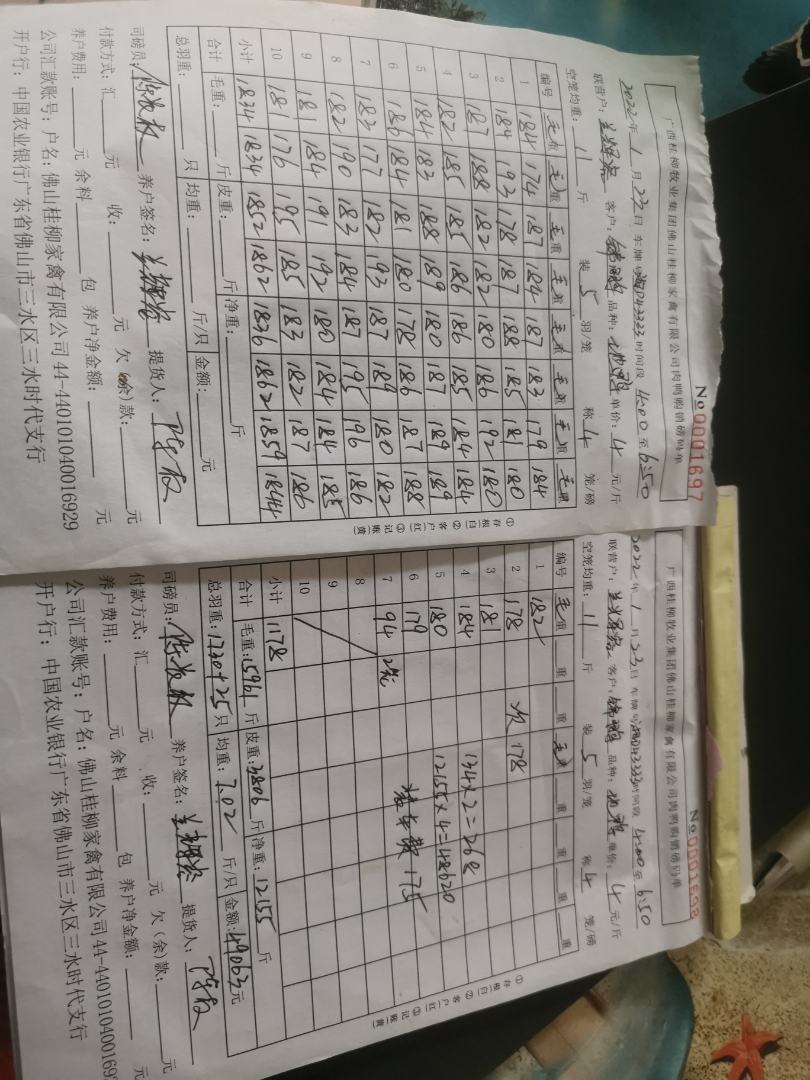 No 0001697
广西桂柳牧业集团佛山桂柳家禽有限公司肉鸭购销磅码单
2022年 1 月 23日 车牌 时间段 4:00 至 6:50
联营户: 客户: 品种: 单价: 4 元/斤
空笼均重: 11 斤 装 5 羽/笼 称 4 笼/磅
编号 毛重 毛重 毛重 毛重 毛重 毛重 毛重 毛重
1 184 174 187 184 187 183 179 184
2 184 193 178 187 188 185 181 180
3 187 188 182 182 180 186 192 180
4 182 185 185 186 186 185 184 184
5 184 183 188 189 180 187 189 189
6 186 184 181 180 178 186 187 188
7 183 177 182 193 187 189 180 182
8 182 190 183 184 187 195 196 186
9 181 184 191 192 180 184 184 185
10 181 176 195 185 183 182 187 186
小计 1834 1834 1852 1862 1836 1862 1859 1844
合计 毛重: 斤 皮重: 斤 净重: 斤
总羽重: 只 均重: 斤/只 金额: 元
司磅员: 养户签名: 提货人:
付款方式: 汇 元 收: 元 欠(余)款: 元
养户费用: 元 余料 包 养户净金额: 元
公司汇款账号: 户名: 佛山桂柳家禽有限公司 44-440101040016929
开户行: 中国农业银行广东省佛山市三水区三水时代支行
①存根白 ②客户红 ③记账黄
No 0001698
广西桂柳牧业集团佛山桂柳家禽有限公司肉鸭购销磅码单
2022年 1 月 23日 车牌 时间段 4:00 至 6:50
联营户: 客户: 品种: 单价: 4 元/斤
空笼均重: 11 斤 装 5 羽/笼 称 4 笼/磅
编号 毛重 重 重 毛重 重 重 重 重
1 182
2 178 次 178
3 181
4 184 134×2=268
5 180 12155×4=48620
6 179 175
7 94 2笼
8
9
10
小计 1178
合计 毛重: 15961 斤 皮重: 3806 斤 净重: 12155 斤
总羽重: 1730+25 只 均重: 7.02 斤/只 金额: 49063 元
司磅员: 养户签名: 提货人:
付款方式: 汇 元 收: 元 欠(余)款: 元
养户费用: 元 余料 包 养户净金额: 元
公司汇款账号: 户名: 佛山桂柳家禽有限公司 44-4401010400169
开户行: 中国农业银行广东省佛山市三水区三水时代支行
①存根白 ②客户红 ③记账黄